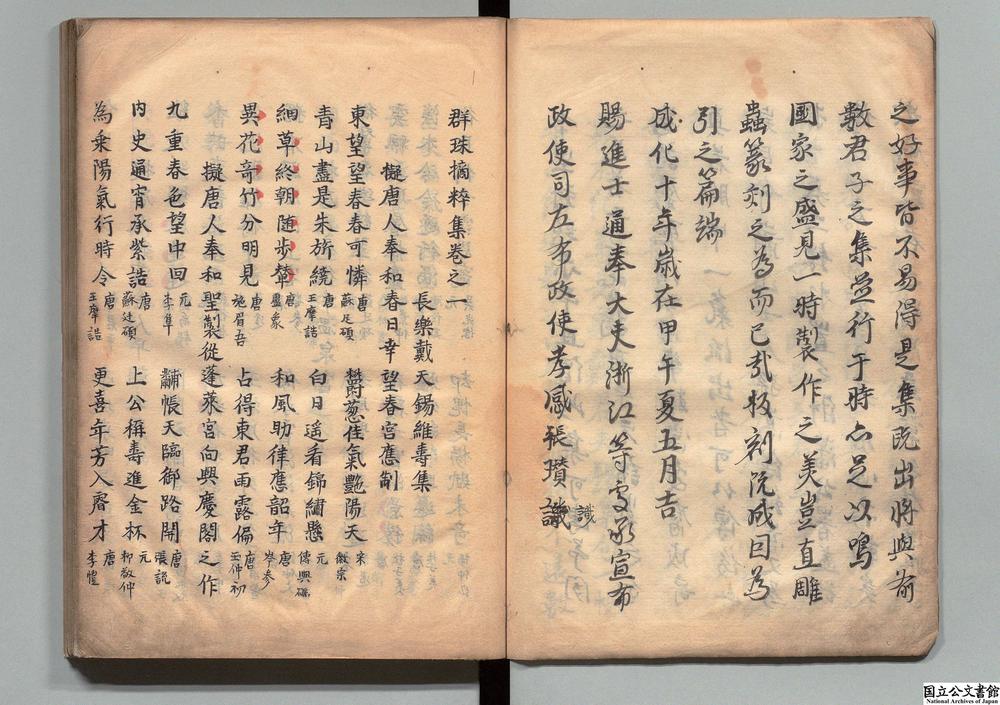 之好事皆不易得是集既出將與前
數君子之集並行于時亦足以鳴
國家之盛見一時製作之美豈直雕
蟲篆刻之為而已哉板刻既成因為
引之篇端
成化十年歲在甲午夏五月吉
賜進士通奉大夫浙江等處承宣布
政使司左布政使孝感張瓚識
識
群珠摘粹集卷之一
長樂戴天錫維壽集
擬唐人奉和春日幸望春宮應制
東望望春春可憐 唐蘇廷碩 鬱葱佳氣艷陽天 宋徽宗
青山盡是朱旂繞 唐王摩詰 白日遙看錦繡懸 元傅與礪
細草終朝随步輦 唐盧象 和風助律應韶年 唐岑參
異花奇竹分明見 唐施眉吾 占得東君雨露偏 唐王仲初
擬唐人奉和聖製從蓬萊宮向興慶閣之作
九重春色望中回 元李隼 黼帳天臨御路開 唐張說
内史通宵承紫誥 唐蘇廷碩 上公稱壽進金杯 元柳敬仲
為乘陽氣行時令 唐王摩詰 更喜年芳入睿才 唐李憕
国立公文書館
National Archives of Japan